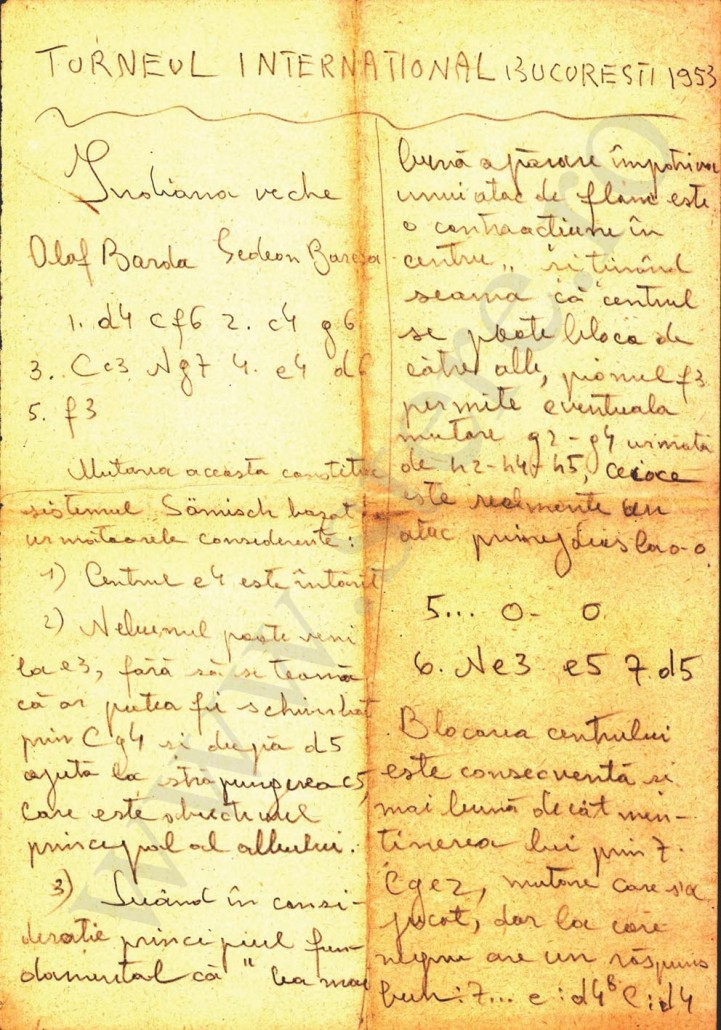 TURNEUL INTERNAȚIONAL BUCUREȘTI 1953
Indiana veche
Olaf Barda Gedeon Barcza
1. d4 Cf6 2. c4 g6
3. Cc3 Ng7 4. e4 d6
5. f3
Mutarea aceasta constitue
sistemul Sämisch bazat pe
urmatoarele considerente:
1) Centrul e4 este întărit
2) Nebunul poate veni
la e3, fără să se teamă
că ar putea fi schimbat
prin Cg4 și după d5
ajută la străpungerea c5,
care este obiectivul
principal al albului.
3) Luând în consi-
derație principiul fun-
damental că "cea mai
bună apărare împotriva
unui atac de flanc este
o contraacțiune în
centru" și ținând
seama că centrul
se poate bloca de
către alb, pionul f3
permite eventuala
mutare g2-g4 urmată
de h2-h4-h5, ceiace
este realmente un
atac primejdios la o-o.
5... O-O
6. Ne3 e5 7. d5
Blocarea centrului
este consecventă și
mai bună decât men-
ținerea lui prin 7.
Cge2, mutare care s'a
jucat, dar la care
negru are un răspuns
bun: 7... e:d4 8 C:d4
www.
.ro